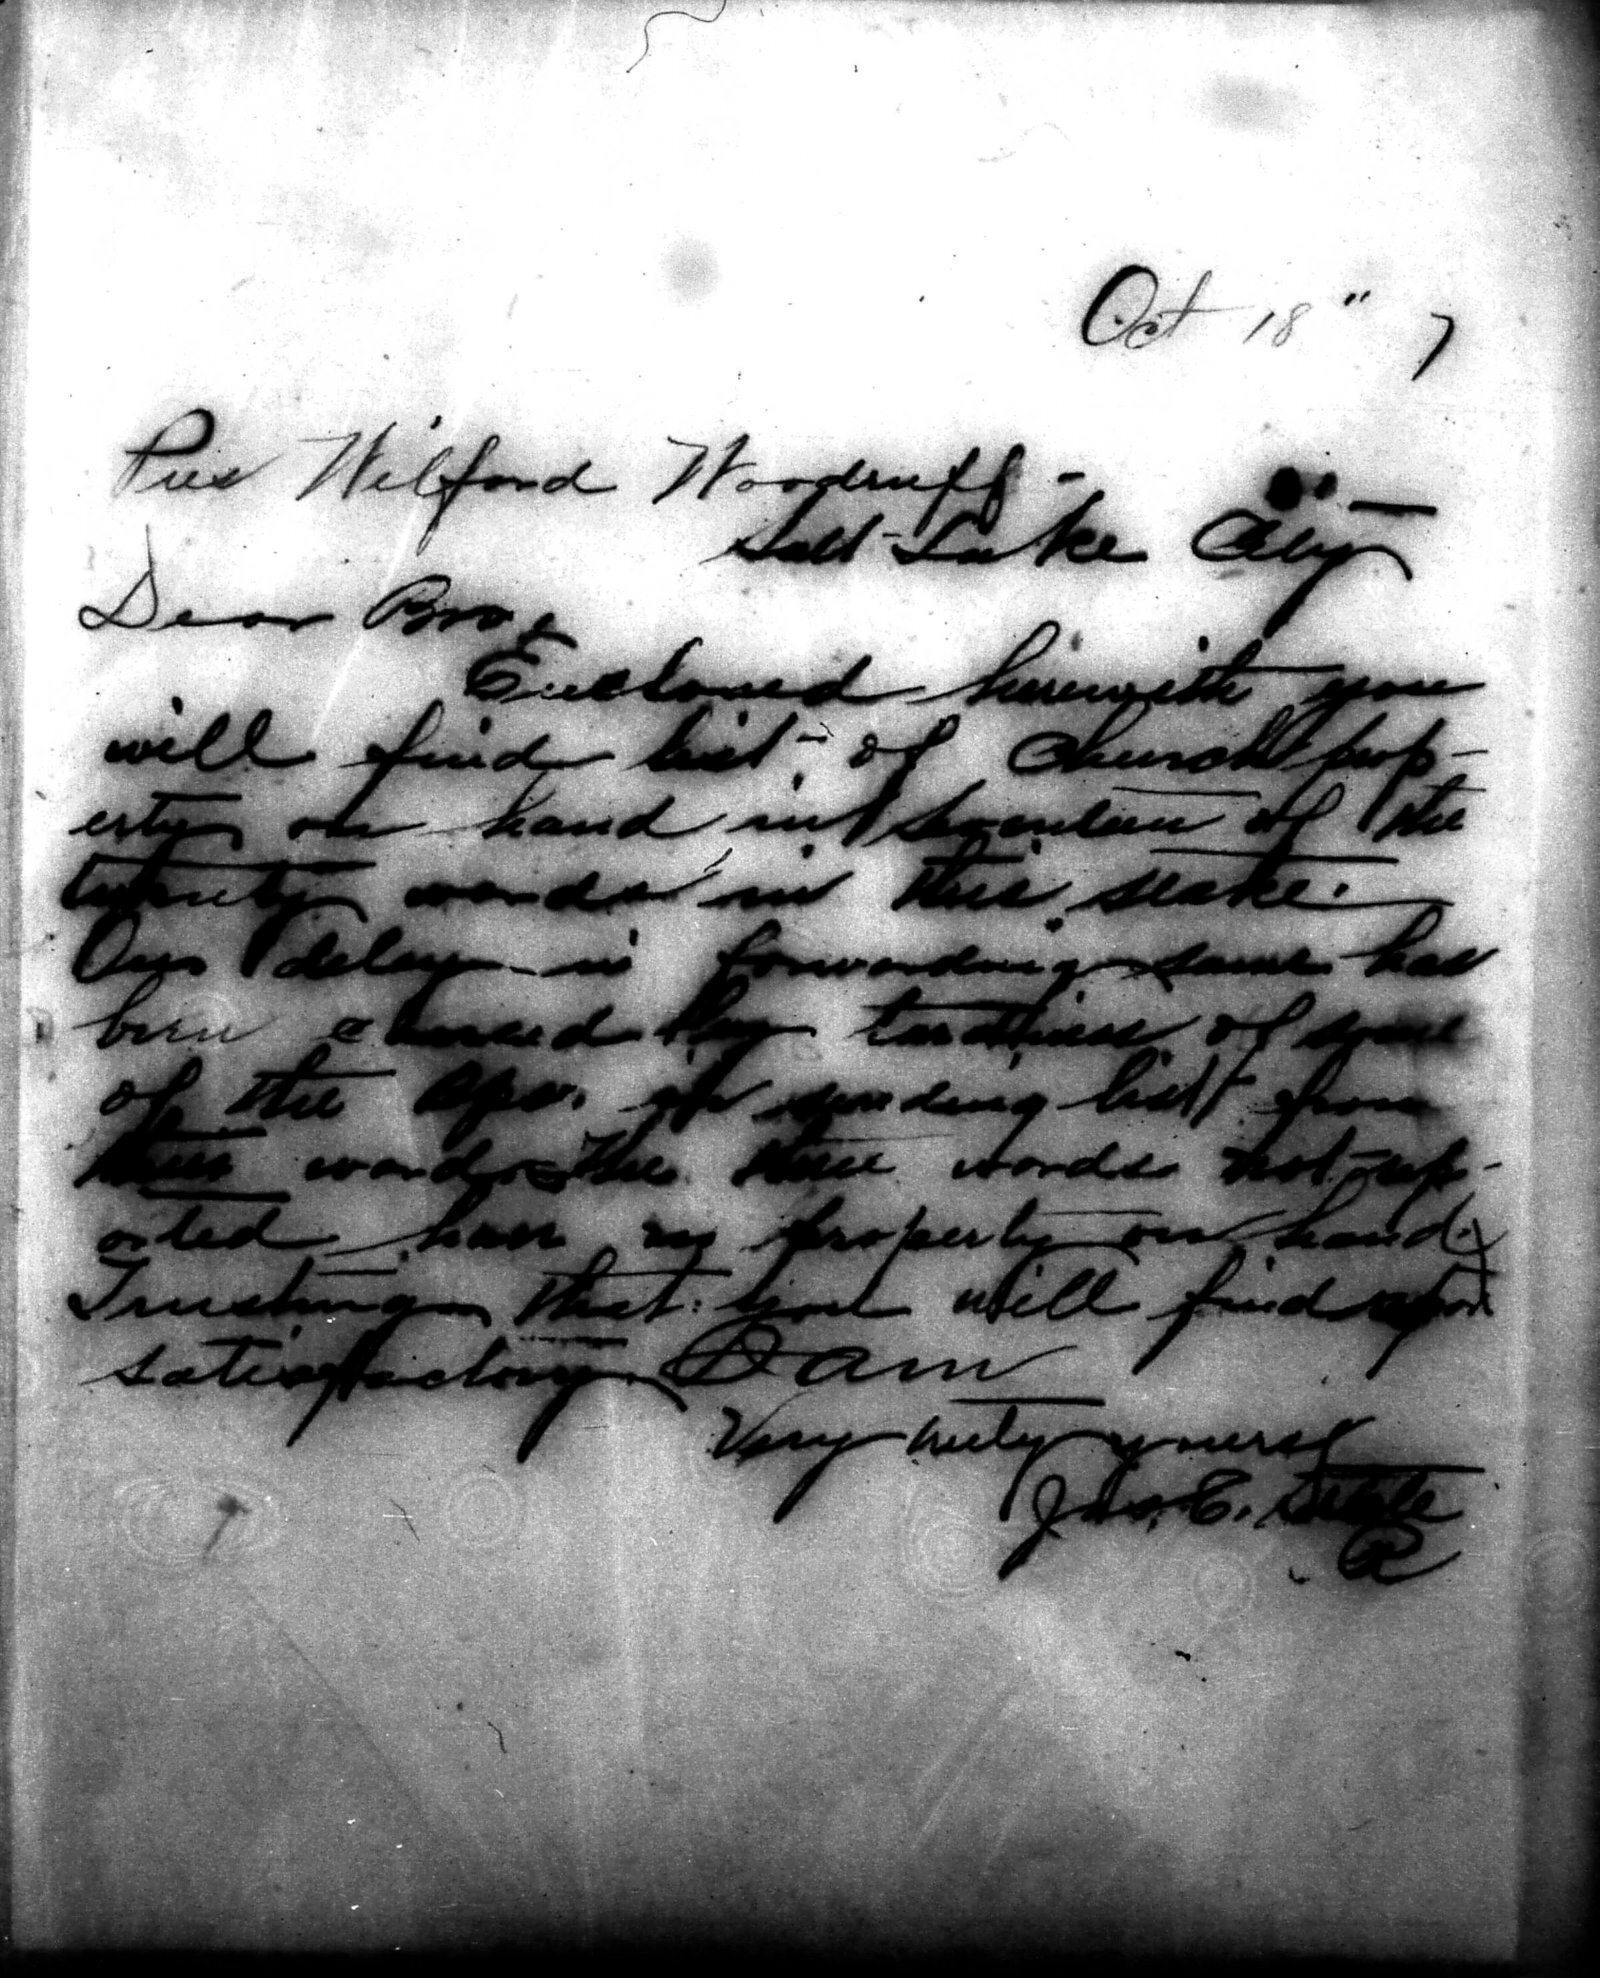 Oct 18" 7
Pres Wilford Woodruff -
Salt Lake City
Dear Bro,
Enclosed herewith you
will find list of Church prop-
erty on hand in seventeen of the
twenty wards in this stake.
Our delay in forwarding same has
been caused by tardiness of some
of the Bps. in sending list from
their wards The three wards not rep-
orted have no property on hand.
Trusting that you will find
satisfactory. I am
Very truly yours
Jas. E. Steele